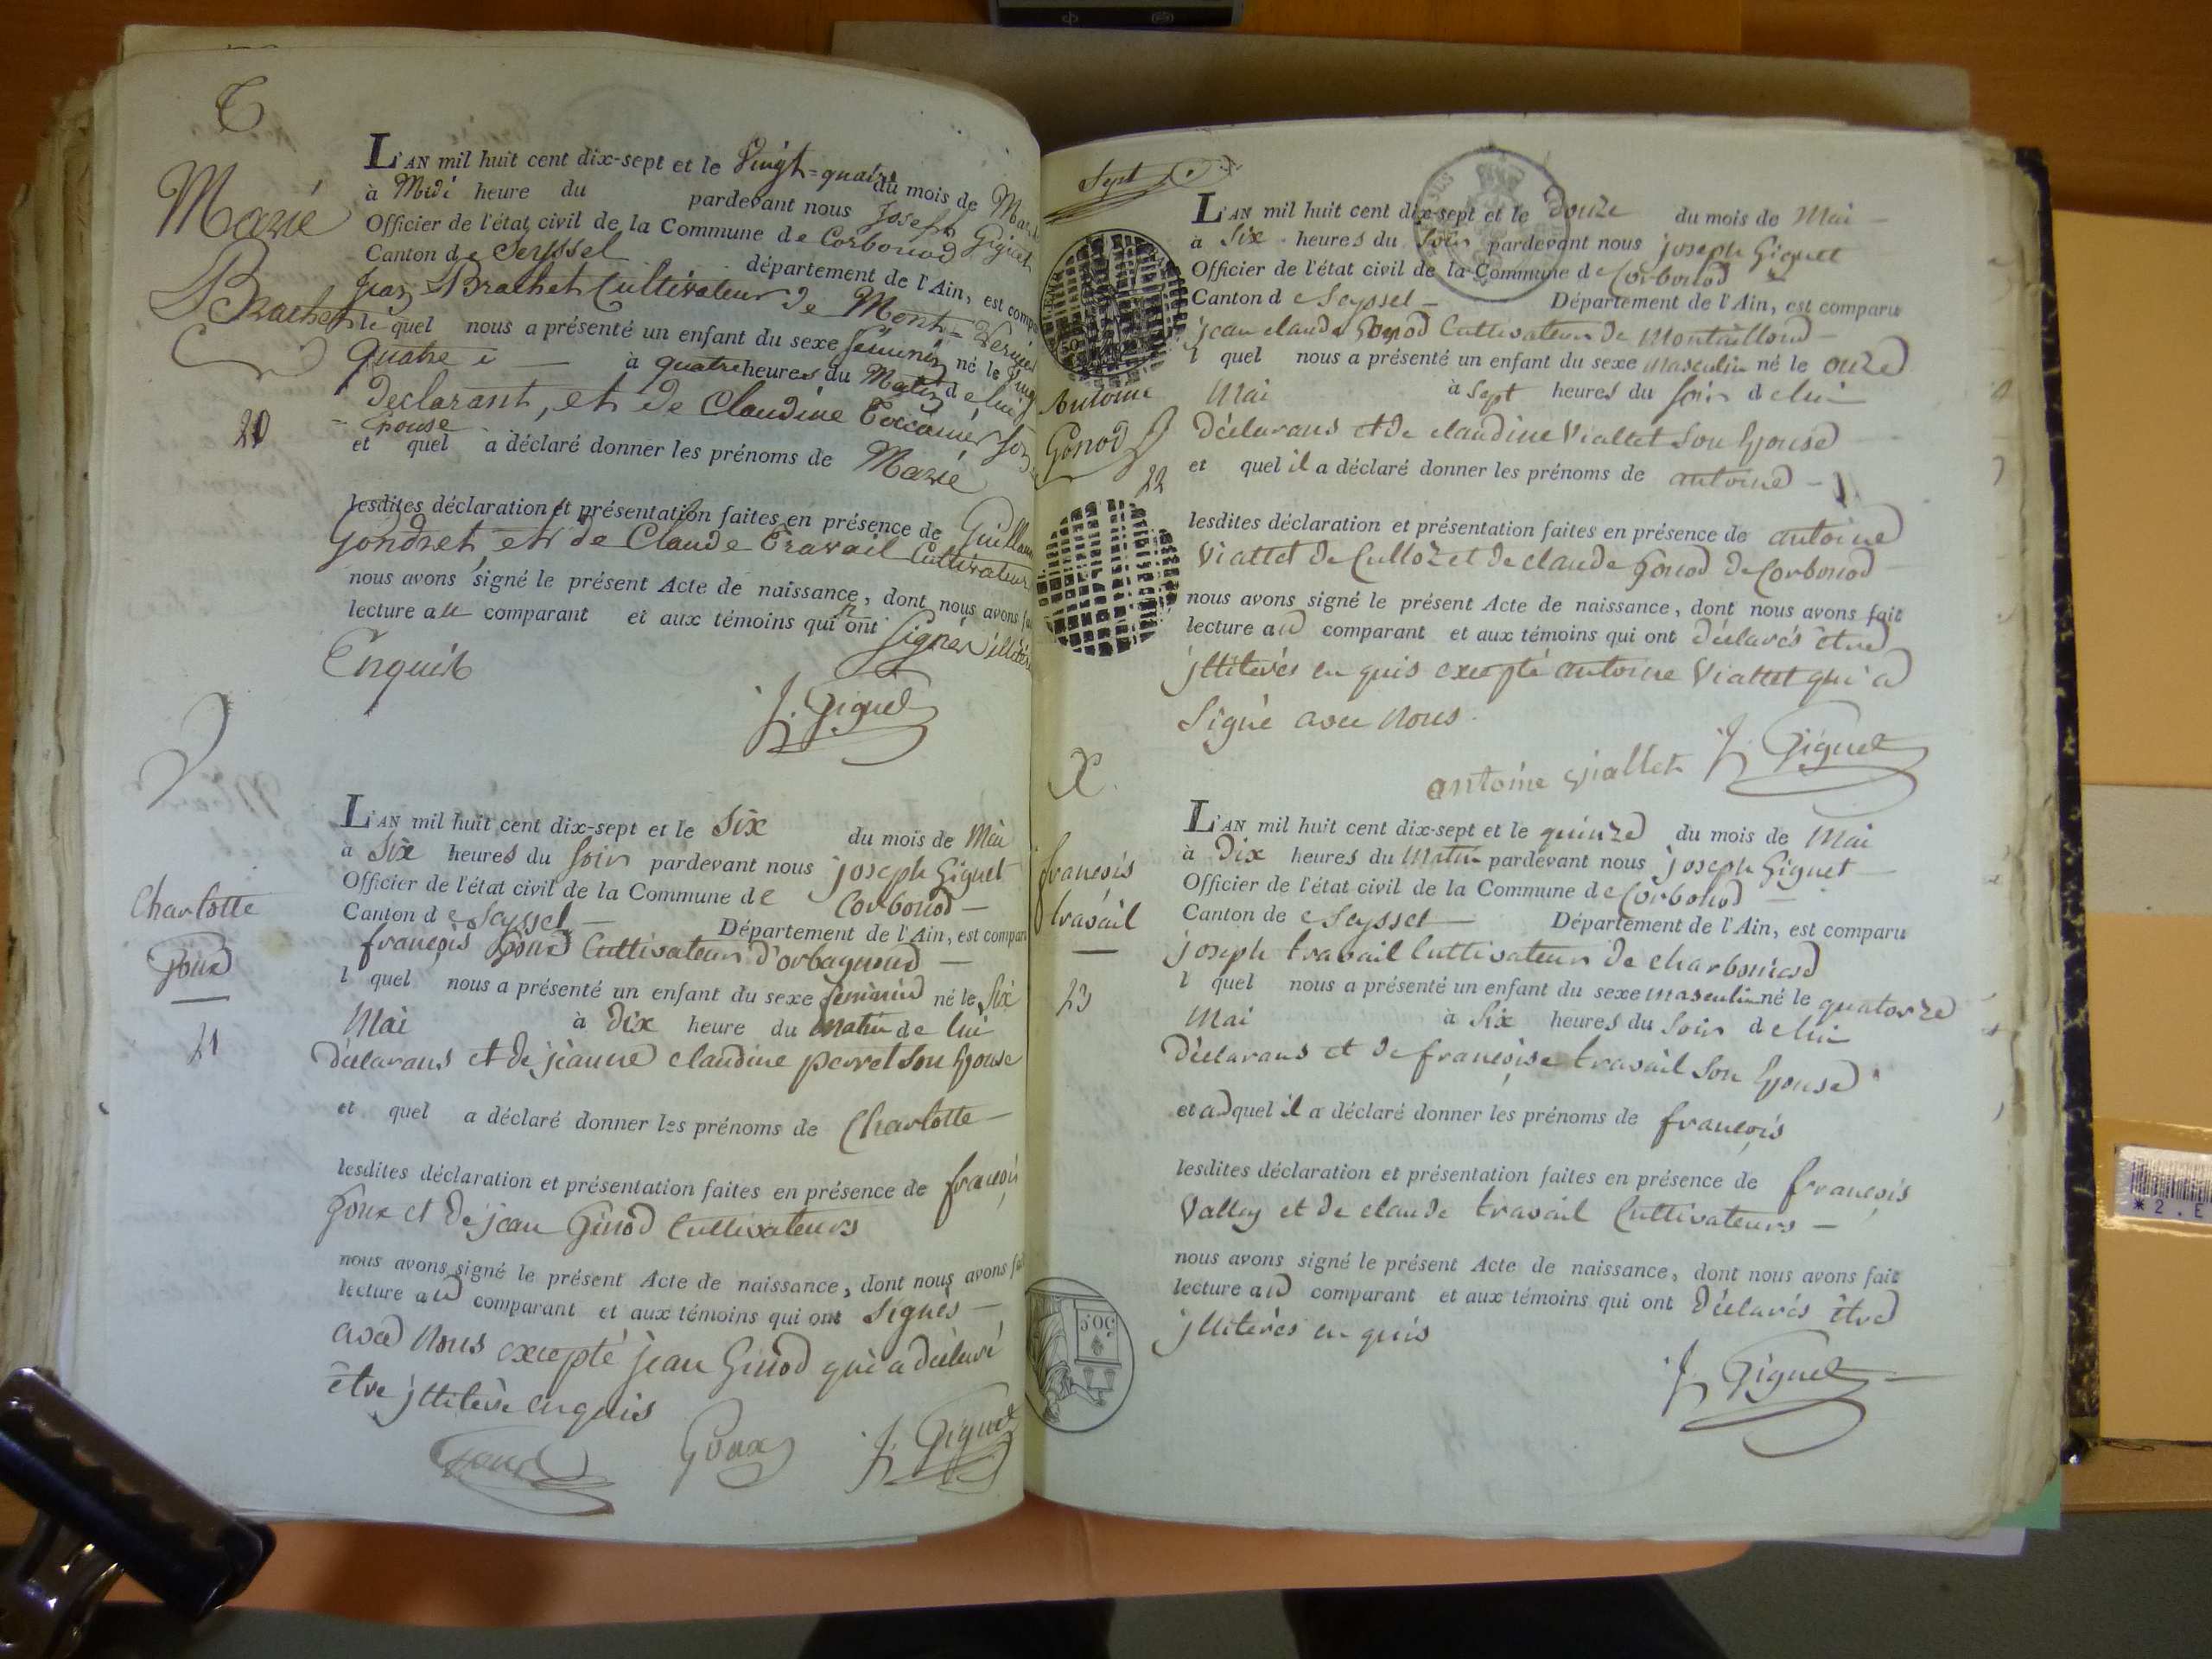 Marie
Brachet
20
L'AN mil huit cent dix-sept et le Vingt=quatre du mois de
à Midi heure du pardevant nous Joseph Giguet
Officier de l'état civil de la Commune de Corbonod
Canton de Seyssel département de l'Ain, est
Jean Brachet Cultivateur de Mont=
le quel nous a présenté un enfant du sexe féminin né le
quatre à quatre heures du Matin de lui
declarant, et de Claudine son
épouse
et quel a déclaré donner les prénoms de Marie
lesdites déclaration et présentation faites en présence de
Gondret, et de Claude Travail Cultivateurs
nous avons signé le présent Acte de naissance, dont nous avons
lecture au comparant et aux témoins qui n'ont signés
Enquis
J. Giguet
Charlotte
21
L'AN mil huit cent dix-sept et le Six du mois de Mai
à Six heures du Soir pardevant nous joseph Giguet
Officier de l'état civil de la Commune de Corbonod
Canton de Seyssel Département de l'Ain, est
françois Cultivateur d'orbagnoud
l quel nous a présenté un enfant du sexe féminin né le Six
Mai à Dix heure du Matin de lui
déclarans et de jeanne claudine perret Son Épouse
et quel a déclaré donner les prénoms de Charlotte
lesdites déclaration et présentation faites en présence de françois
Goux et de jean Ginod Cultivateurs
nous avons signé le présent Acte de naissance, dont nous avons
lecture au comparant et aux témoins qui ont Signés
avec Nous excepté jean Ginod qui a déclaré
être jlliteré enquis
Goux J. Giguet
Sept
Antoine
Gonod
22
L'AN mil huit cent dix-sept et le Douze du mois de Mai
à Six heures du Soir pardevant nous joseph Giguet
Officier de l'état civil de la Commune de Corbonod
Canton de Seyssel Département de l'Ain, est comparu
jean claude Gonod Cultivateur de Montailloud
l quel nous a présenté un enfant du sexe Masculin né le onze
Mai à Sept heures du Soir de lui
déclarans et de claudine Viallet Son Épouse
et quel il a déclaré donner les prénoms de antoine
lesdites déclaration et présentation faites en présence de antoine
Viallet de Culloz et de claude Gonod de Corbonod
nous avons signé le présent Acte de naissance, dont nous avons fait
lecture au comparant et aux témoins qui ont déclarés être
jlliterés enquis excepté antoine Viallet qui a
Signé avec Nous.
antoine viallet J. Giguet
françois
travail
23
L'AN mil huit cent dix-sept et le quinze du mois de Mai
à Dix heures du Matin pardevant nous joseph Giguet
Officier de l'état civil de la Commune de Corbonod
Canton de Seyssel Département de l'Ain, est comparu
joseph travail Cultivateur de
l quel nous a présenté un enfant du sexe Masculin né le quatorze
Mai à Six heures du Soir de lui
déclarans et de françoise travail Son Épouse
et au quel il a déclaré donner les prénoms de françois
lesdites déclaration et présentation faites en présence de françois
Valley et de claude travail Cultivateurs
nous avons signé le présent Acte de naissance, dont nous avons fait
lecture au comparant et aux témoins qui ont déclarés être
jlliterés enquis
J. Giguet
50.c
*2.E